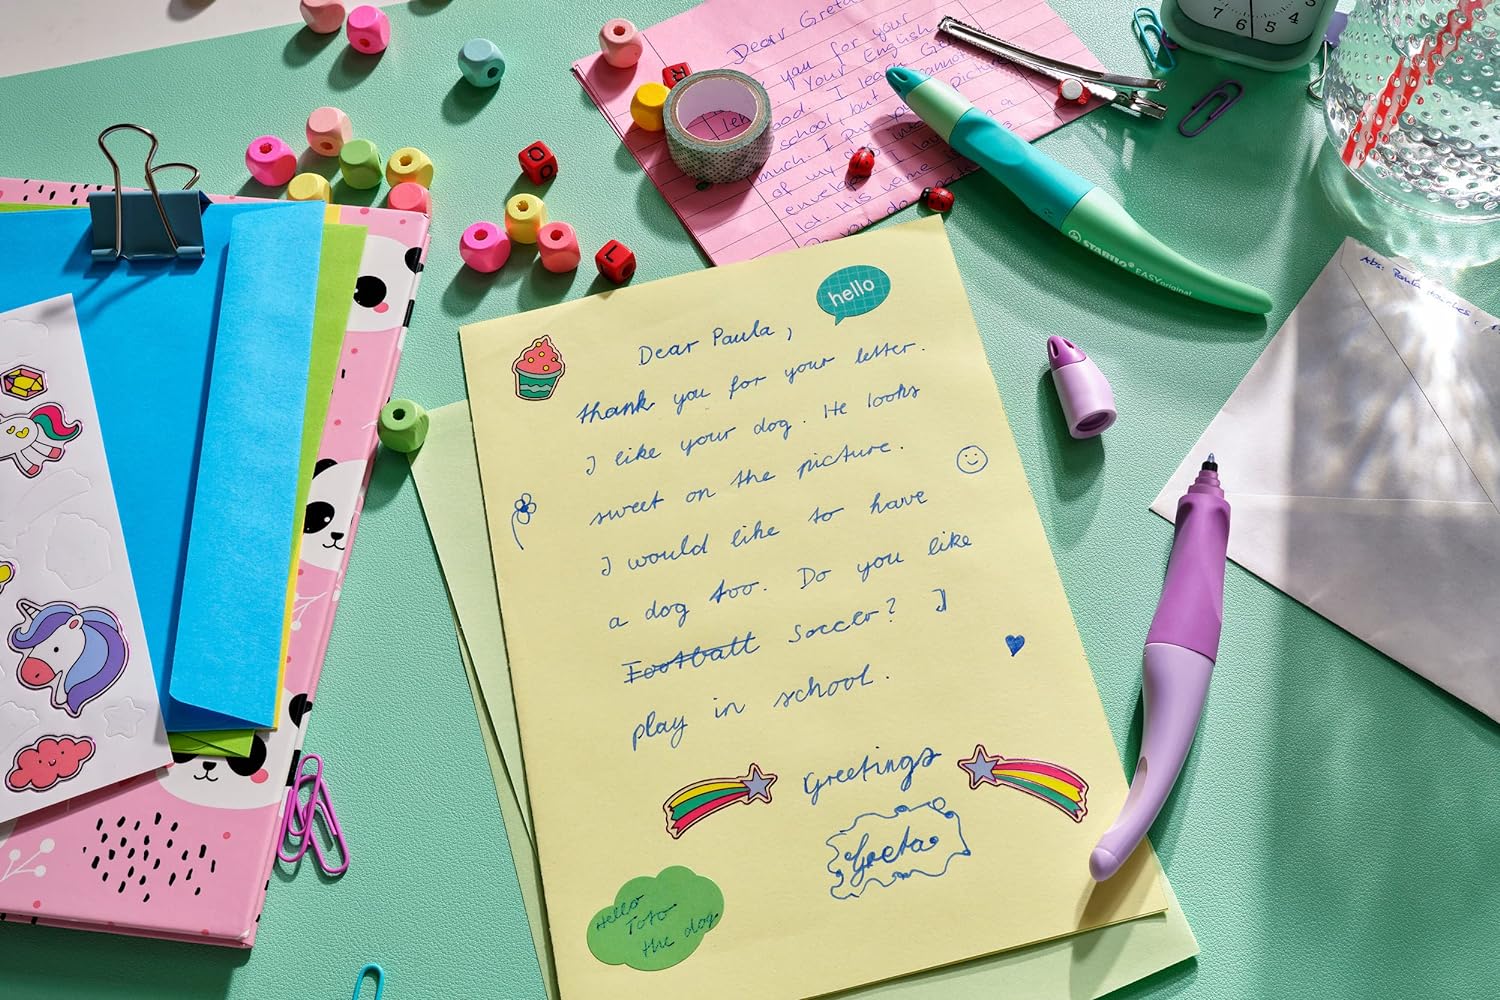 Dear Greta
you for your
your English
good. I learn
school, but cannot
much. I put picture
of my
envelope I
lot. His name is
you do
hello
Dear Paula,
thank you for your letter.
I like your dog. He looks
sweet on the picture.
I would like to have
a dog too. Do you like
Football Soccer? I
play in school.
Greetings
Greta
Hello
Toto
the dog
STABILO® EASYoriginal
Abs: Paula
7 6 5 4
R
L